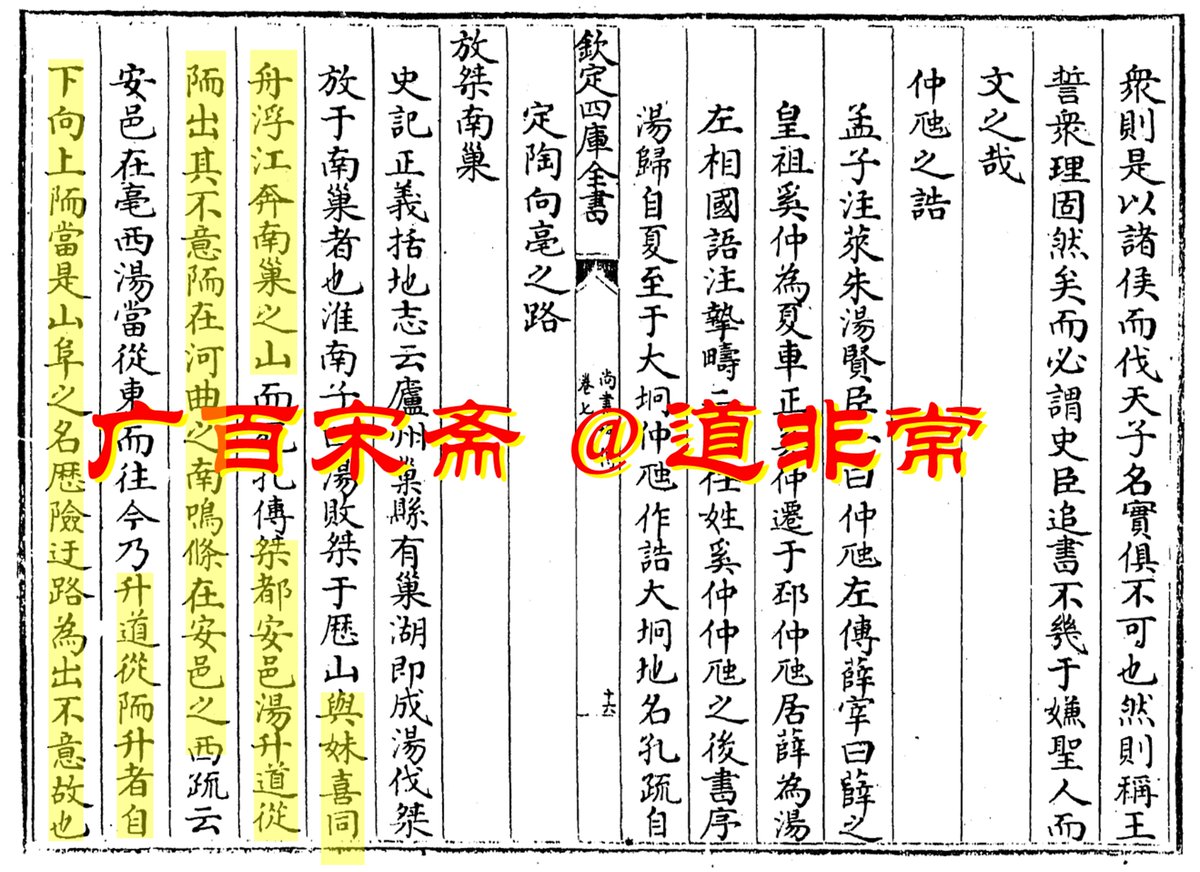 衆則是以諸侯而伐天子名實俱不可也然則稱王
誓衆理固然矣而必謂史臣追書不幾于嫌聖人而
文之哉
仲虺之誥
孟子注萊朱湯賢臣曰仲虺左傳薛宰曰薛之
皇祖奚仲為夏車正仲遷于邳仲虺居薛為湯
左相國語注摯疇任姓奚仲仲虺之後書序
湯歸自夏至于大坰仲虺作誥大坰地名孔疏自
欽定四庫全書
尚書
卷七
十六
定陶向亳之路
放桀南巢
史記正義括地志云廬州巢縣有巢湖即成湯伐桀
放于南巢者也淮南子曰湯敗桀于歷山與妹喜同
舟浮江奔南巢之山而孔傳桀都安邑湯升道從
陑出其不意陑在河曲之南鳴條在安邑之西疏云
安邑在亳西湯當從東而往今乃升道從陑升者自
下向上陑當是山阜之名歷險迂路為出不意故也
广百宋斋 @道非常